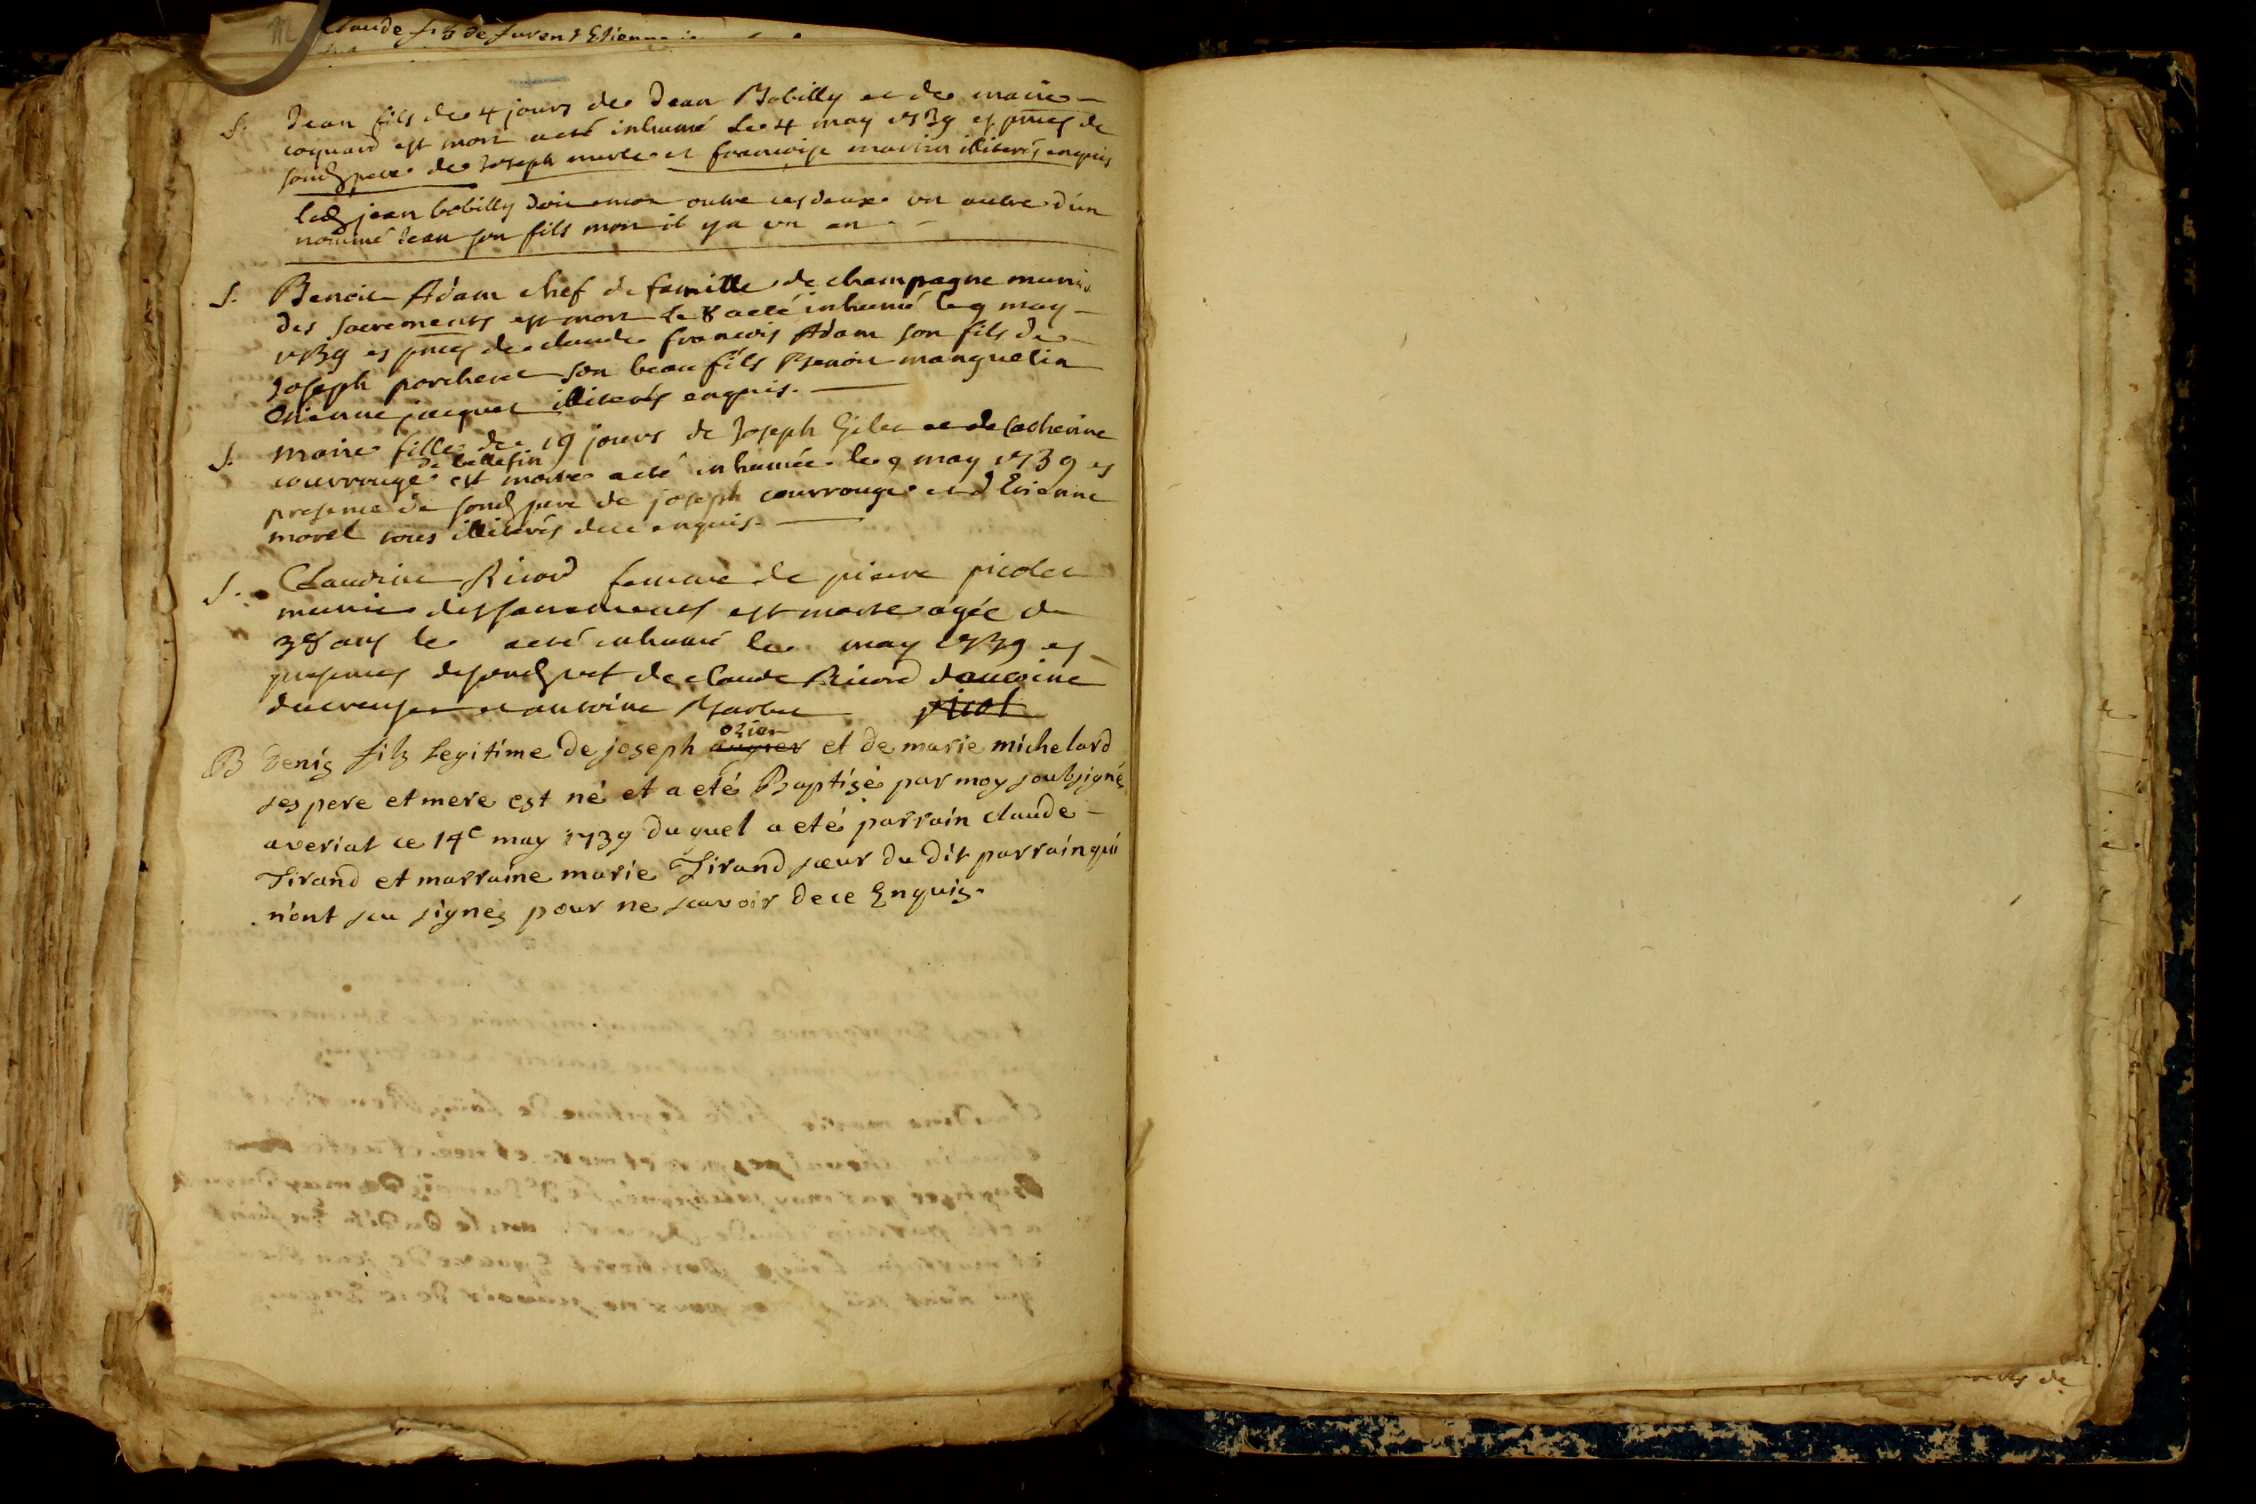 Claude fils de Laurent Etienne
S. Jean fils de 4 jours de Jean Bobilly et de marie
coquard est mort a eté inhumé le 4 may 1739 es pnces de
sond pere de Joseph merle et francoise martin illiterés enquis
led jean bobilly doit encor outre ces deux un autre d'un
nommé Jean son fils mort il y a un an
S. Benoit Adam chef de famille de champagne muni
des sacrements est mort le 8 a eté inhumé le 9 may
1739 es pnces de claude francois Adam son fils de
Joseph porcheret son beau fils Benoit manguelin
Etienne jacquet illiterés enquis.
S. marie fille de 19 jours de Joseph Gilet et de Catherine
de bellefin
courrouge est morte a eté inhumée le 9 may 1739 es
presence de sond pere de joseph courrouge et d'Etienne
morel tous illiterés de ce enquis.
S. Claudine Ricord femme de pierre picolet
munie des sacrements est morte agée de
38 ans le a eté inhumé le may 1739 es
presences de sond de claude Ricord d'antoine
ducreuse et antoine Barbet picol
ozier
B Denis fils legitime de joseph augier et de marie michelard
ses pere et mere est né et a eté Baptisé par moy soubsigné
averiat ce 14e may 1739 du quel a eté parrain claude
Tirand et marraine marie Tirand sœur du dit parrain qui
n'ont sçu signés pour ne sçavoir de ce Enquis.